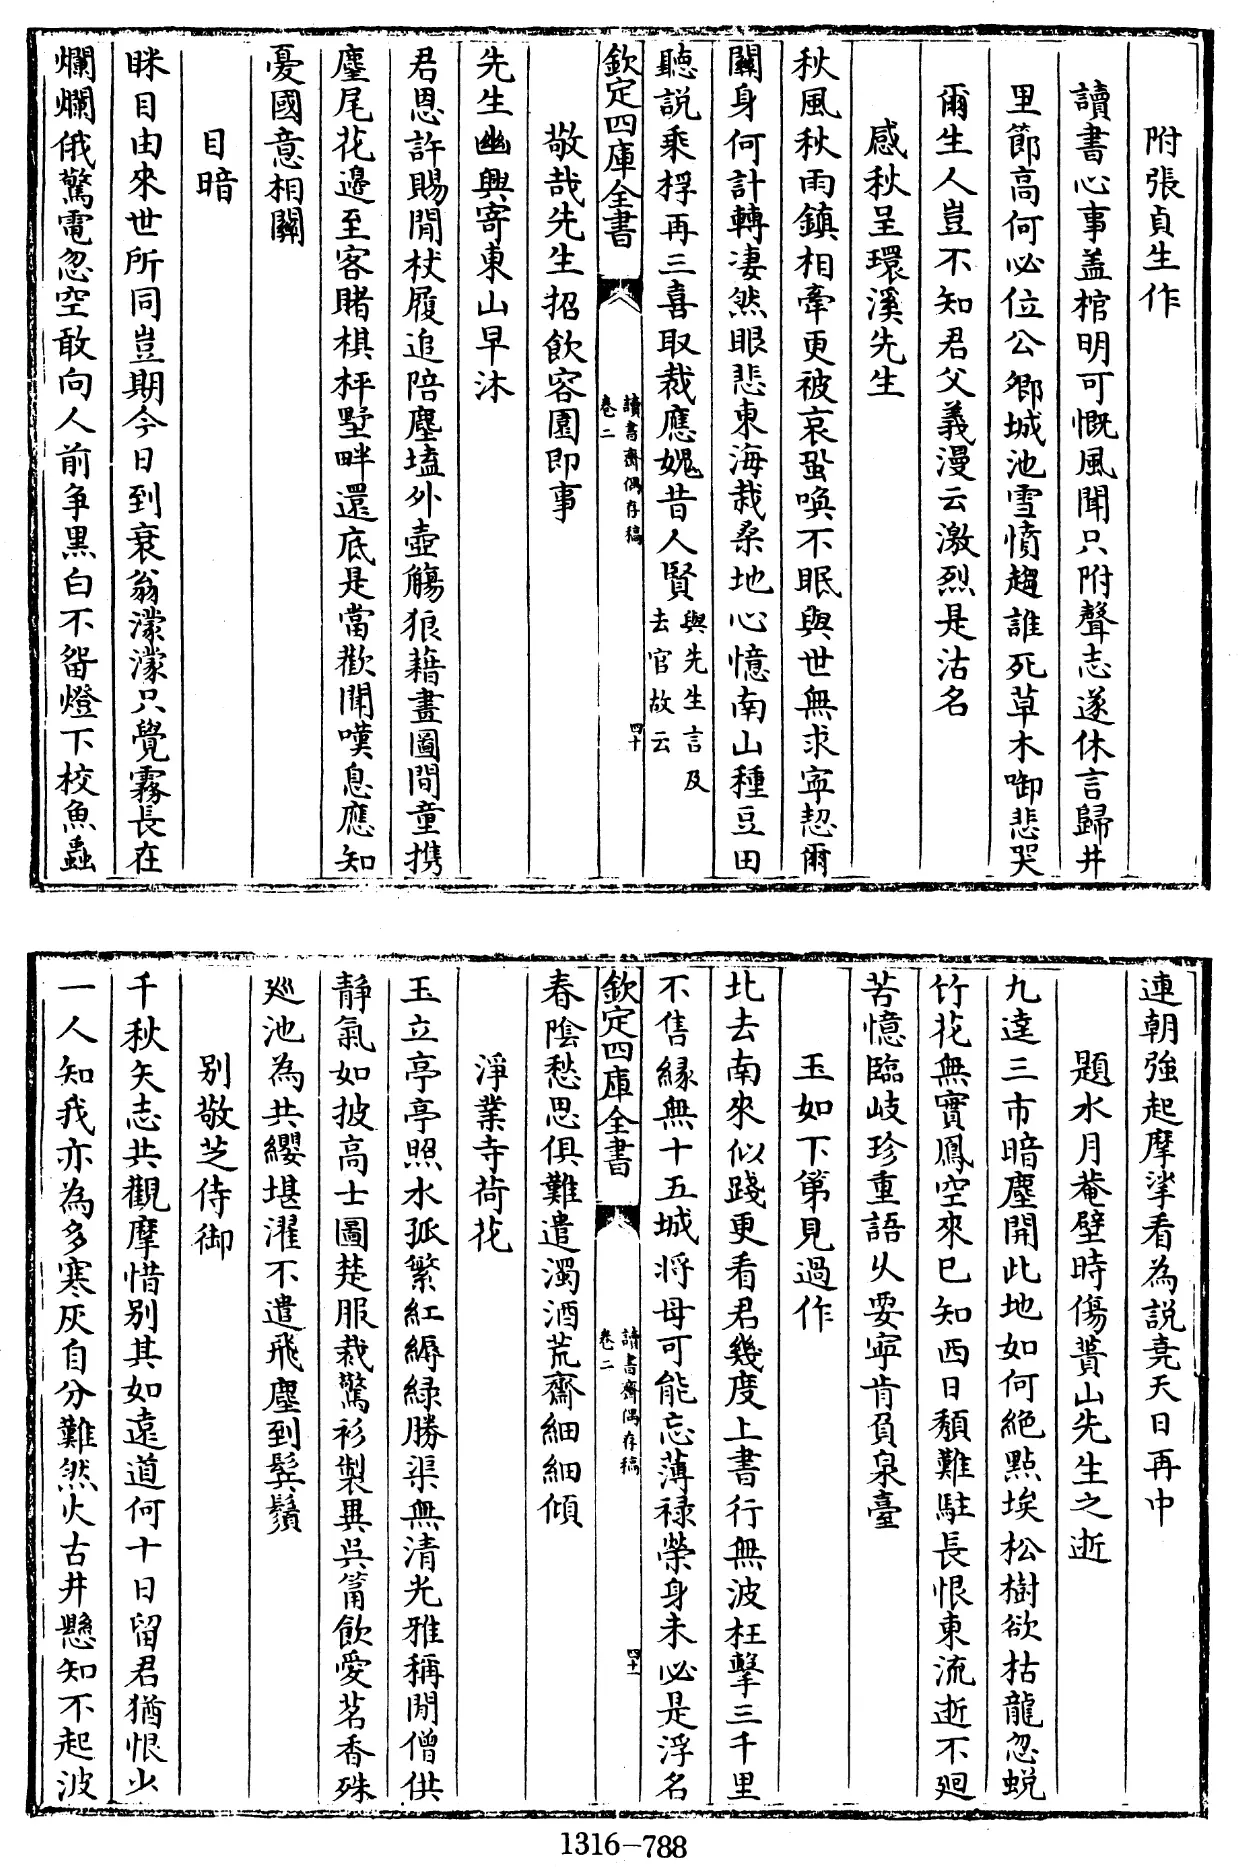 附張貞生作
讀書心事盖棺明可慨風聞只附聲志遂休言歸井
里節高何必位公卿城池雪憤趨誰死草木啣悲哭
爾生人豈不知君父義漫云激烈是沽名
感秋呈環溪先生
秋風秋雨鎮相牽更被哀蛩喚不眠與世無求寧恝爾
關身何計轉凄然眼悲東海栽桑地心憶南山種豆田
聽說乘桴再三喜取裁應媿昔人賢與先生言及
去官故云
欽定四庫全書
讀書齋偶存稿
卷二
四十
敬哉先生招飲容園即事
先生幽興寄東山早沐
君恩許賜閒杖履追陪塵壒外壺觴狼藉畫圖間童携
麈尾花邊至客賭棋枰墅畔還底是當歡聞嘆息應知
憂國意相關
目暗
眯目由來世所同豈期今日到衰翁濛濛只覺霧長在
爛爛俄驚電忽空敢向人前爭黑白不留燈下校魚蟲
連朝強起摩挲看為說堯天日再中
題水月菴壁時傷蕢山先生之逝
九逵三市暗塵開此地如何絶點埃松樹欲枯龍忽蜕
竹花無實鳳空來已知西日頽難駐長恨東流逝不廻
苦憶臨岐珍重語乆要寧肯負泉臺
玉如下第見過作
北去南來似踐更看君幾度上書行無波枉擊三千里
不售縁無十五城將母可能忘薄禄榮身未必是浮名
欽定四庫全書
讀書齋偶存稿
卷二
四十一
春陰愁思俱難遣濁酒荒齋細細傾
淨業寺荷花
玉立亭亭照水孤繁紅縟緑勝渠無清光雅稱閒僧供
靜氣如披高士圖楚服裁驚衫製異吳筩飲愛茗香殊
廵池為共纓堪濯不遣飛塵到鬂鬚
别敬芝侍御
千秋矢志共觀摩惜别其如遠道何十日留君猶恨少
一人知我亦為多寒灰自分難然火古井懸知不起波
1316-788